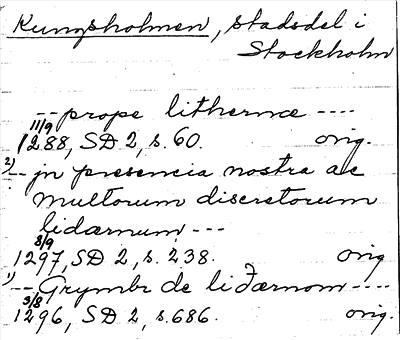 Kungsholmen, stadsdel i
Stockholm
-- prope lithernæ ----
11/9
1288, SD 2, s. 60. orig.
2) -- jn presencia nostra ac
multorum discretorum
lidærnum, ---
8/9
1297, SD 2, s. 238. orig
1) -- Grymbr de liðærnom ----
3/8
1296, SD 2, s. 686. orig.